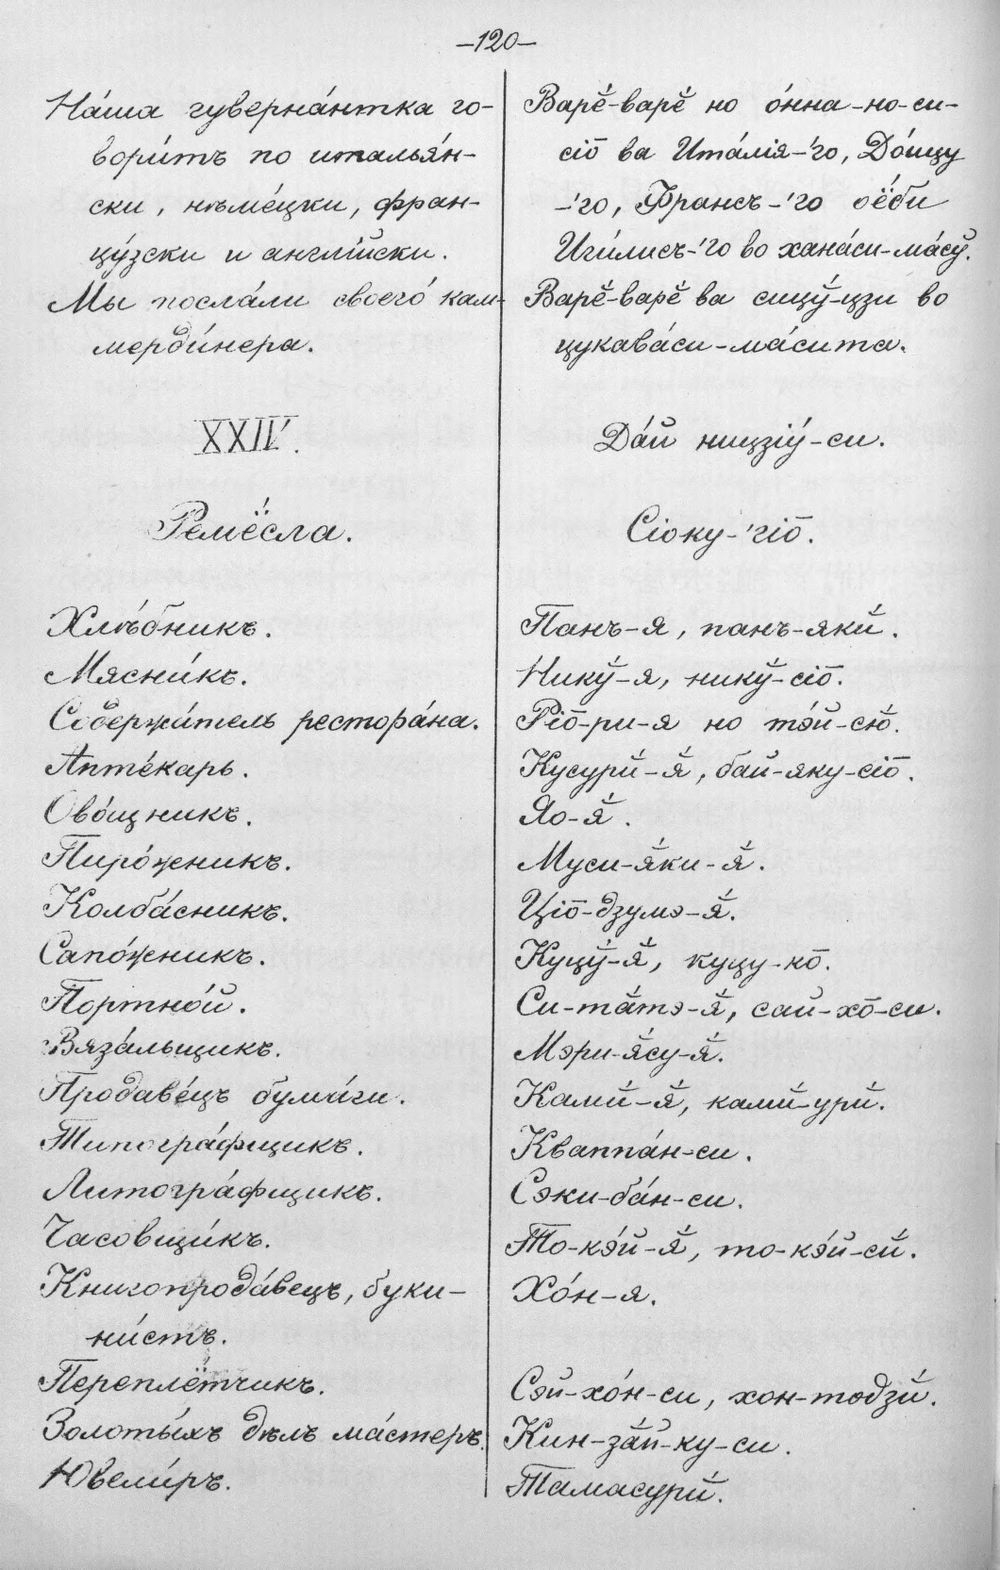 —120—
На́ша гуверна́нтка го-
вори́тъ по италья́н-
ски, нѣме́цки, фран-
цу́зски и англі́йски.
Мы посла́ли своего́ кам-
мерди́нера.
XXIV.
Ремёсла.
Хлѣ́бникъ.
Мясни́къ.
Содержа́тель рестора́на.
Апте́карь.
Ово́щникъ.
Пиро́жникъ.
Колба́сникъ.
Сапо́жникъ.
Портно́й.
Вяза́льщикъ.
Продаве́цъ бума́ги.
Типогра́фщикъ.
Литогра́фщикъ.
Часовщи́къ.
Книгопрода́вецъ, буки-
ни́стъ.
Переплётчикъ.
Золоты́хъ дѣлъ ма́стеръ.
Ювели́ръ.
Варĕ́-варĕ́ но о́нна-но-си-
сіо̄ ва Ита́лія-'го, До́ицу
-'го, Франсъ-'го оё́би
Иги́лисъ-'го во хана́си-ма́сў.
Варĕ́-варĕ́ ва сицў́-цзи во
цукава́си-ма́сита.
Да́й ницзіу́-си.
Сіоку-'гіо̄.
Панъ-я, панъ-якӣ́.
Никў́-я, никў́-сіо̄.
Ріо̄-ри-я но тэ́й-сю̆́.
Кусури́-я̆́, бай-яку-сіо̄.
Яо-я̆́.
Муси-я̆́ки-я̆́.
Ціо̄-дзумэ-я̆́.
Куцў́-я̆́, куцу-ко̄.
Си-тӑ́тэ-я̆́, сай-хо̄-си.
Мэри-я̆́су-я̆́.
Ками́-я̆́, ками́-ури́.
Кваппа́н-си.
Сэки-ба́н-си.
То-кэ́й-я̆́, то-кэ́й-си́.
Хо́н-я.
Сэй-хо́н-си, хон-тодзи́.
Кин-за́й-ку-си.
Тамасури́.